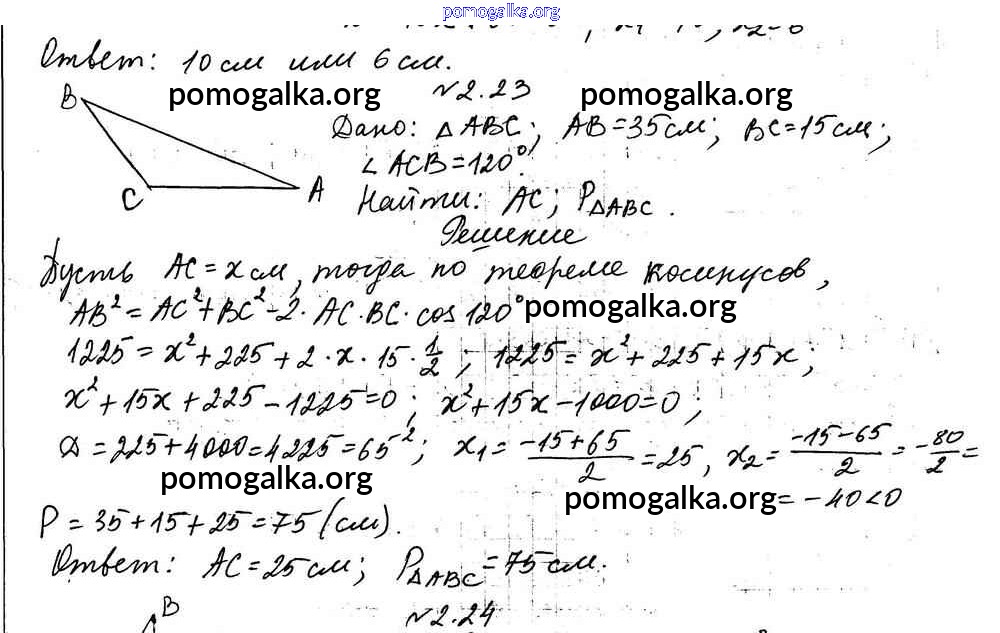 pomogalka.org
Ответ: 10 см или 6 см.
№2.23
pomogalka.org pomogalka.org
B
C
A
Дано: △ABC; AB=35см; BC=15см;
∠ACB=120°.
Найти: AC; P△ABC.
Решение
Пусть AC=x см, тогда по теореме косинусов,
AB²=AC²+BC²-2·AC·BC·cos120°
pomogalka.org
1225=x²+225+2·x·15·1/2; 1225=x²+225+15x;
x²+15x+225-1225=0; x²+15x-1000=0;
D=225+4000=4225=65²; x₁=(-15+65)/2=25, x₂=(-15-65)/2=-80/2=
pomogalka.org pomogalka.org
=-40<0
P=35+15+25=75(см).
Ответ: AC=25см; P△ABC=75см.
B
№2.24